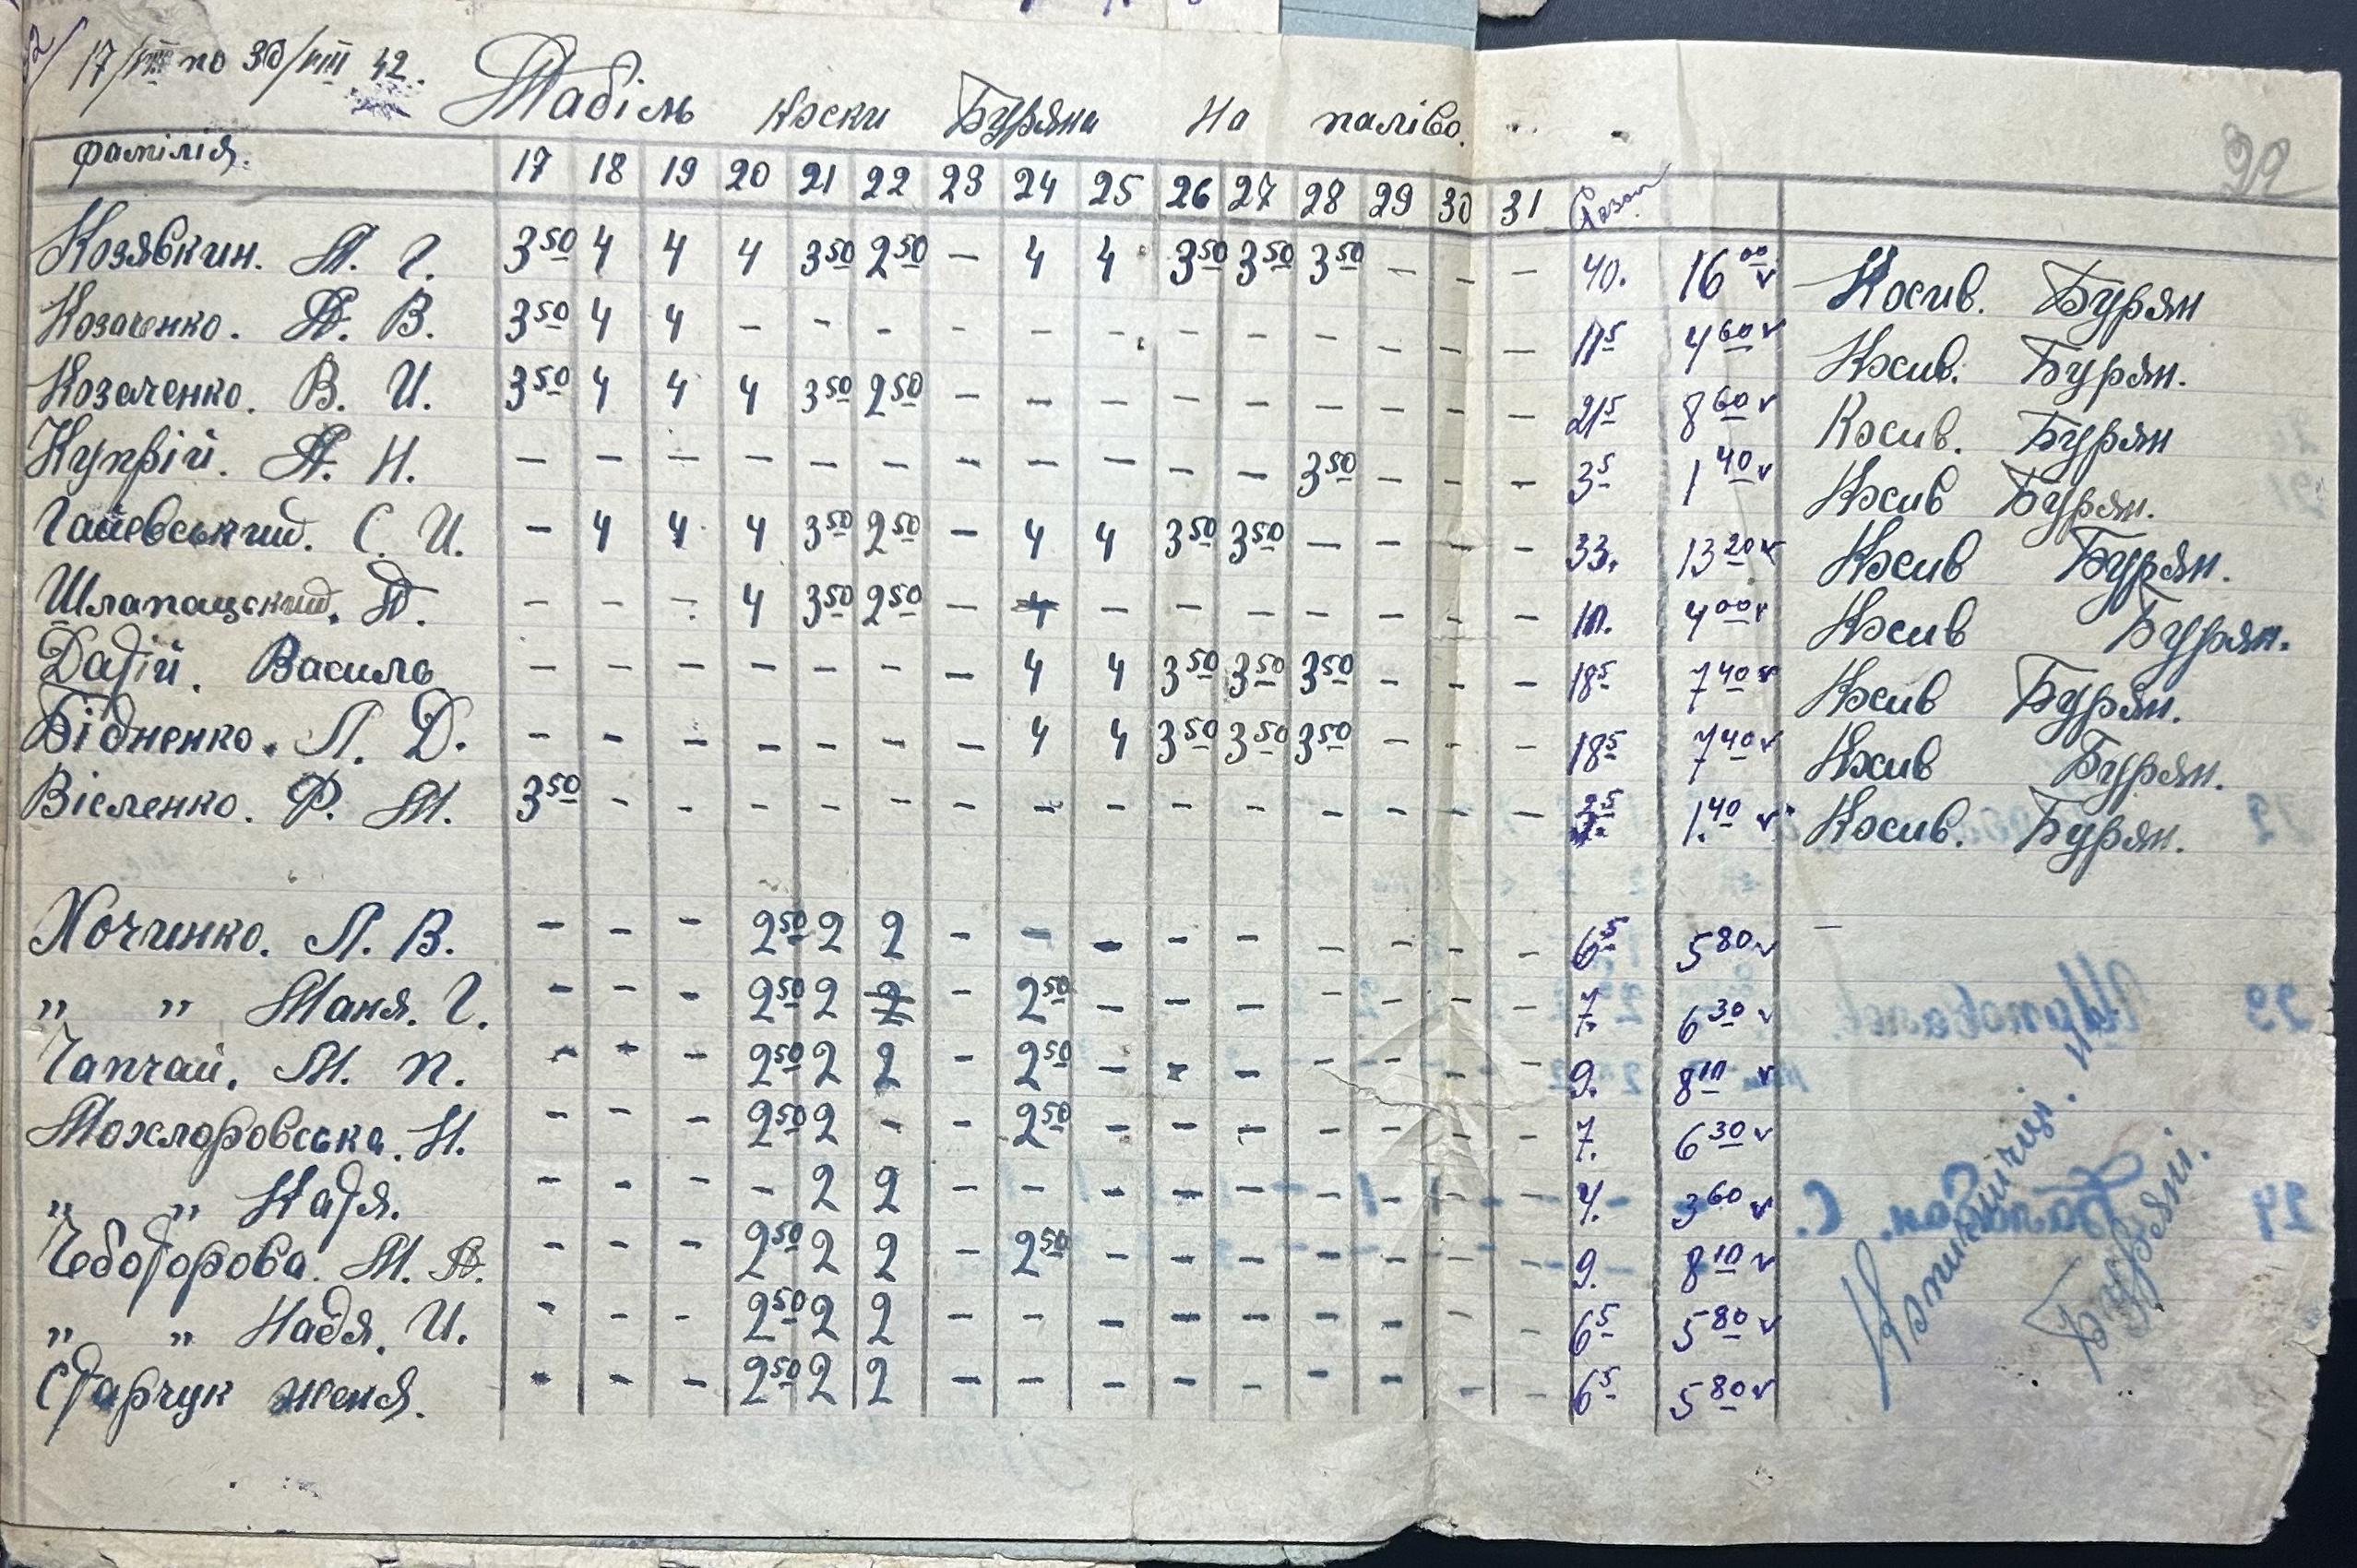 17/VIII по 30/VIII 42.
Табіль Коски Буряна На паліво.
29
фамілія. 17 18 19 20 21 22 23 24 25 26 27 28 29 30 31 Разом
Козявкин. А. Г. 3 50 4 4 4 3 50 2 50 – 4 4 3 50 3 50 3 50 – – – 40. 16 00 v Косив. Бурян
Козаченко. А. В. 3 50 4 4 – – – – – – – – – – – – 11 5 4 60 v Косив. Бурян.
Козаченко. В. И. 3 50 4 4 4 3 50 2 50 – – – – – – – – – 21 5 8 60 v Косив. Бурян
Купрій. А. Н. – – – – – – – – – – – 3 50 – – – 3 5 1 40 v Косив Бурян.
Гайевський. С. И. – 4 4 4 3 50 2 50 – 4 4 3 50 3 50 – – – – 33. 13 20 v Косив Бурян.
Шлапацский. А. – – – 4 3 50 2 50 – 4 – – – – – – – 10. 4 00 v Косив Бурян.
Дадій. Василь – – – – – – – 4 4 3 50 3 50 3 50 – – – 18 5 7 40 v Косив Бурян.
Бідненко. Л. Д. – – – – – – – 4 4 3 50 3 50 3 50 – – – 18 5 7 40 v Косив Бурян.
Вісленко. Ф. М. 3 50 – – – – – – – – – – – – – – 3 5 1. 40 v Косив. Бурян.
Хочинко. Л. В. – – – 2 50 2 2 – – – – – – – – – 6 5 5 80 v –
" " Маня. Г. – – – 2 50 2 2 – 2 50 – – – – – – – 7. 6 30 v
Чапчай. М. П. – – – 2 50 2 2 – 2 50 – – – – – – – 9. 8 10 v
Мохлоровська. Н. – – – 2 50 2 – – 2 50 – – – – – – – 7. 6 30 v
" " Надя. – – – – 2 2 – – – – – – – – – 4. 3 60 v
Чеботорова. М. А. – – – 2 50 2 2 – 2 50 – – – – – – – 9. 8 10 v
" " Надя. И. – – – 2 50 2 2 – – – – – – – – – 6 5 5 80 v
Старчук Женя. – – – 2 50 2 2 – – – – – – – – – 6 5 5 80 v
Буряні.